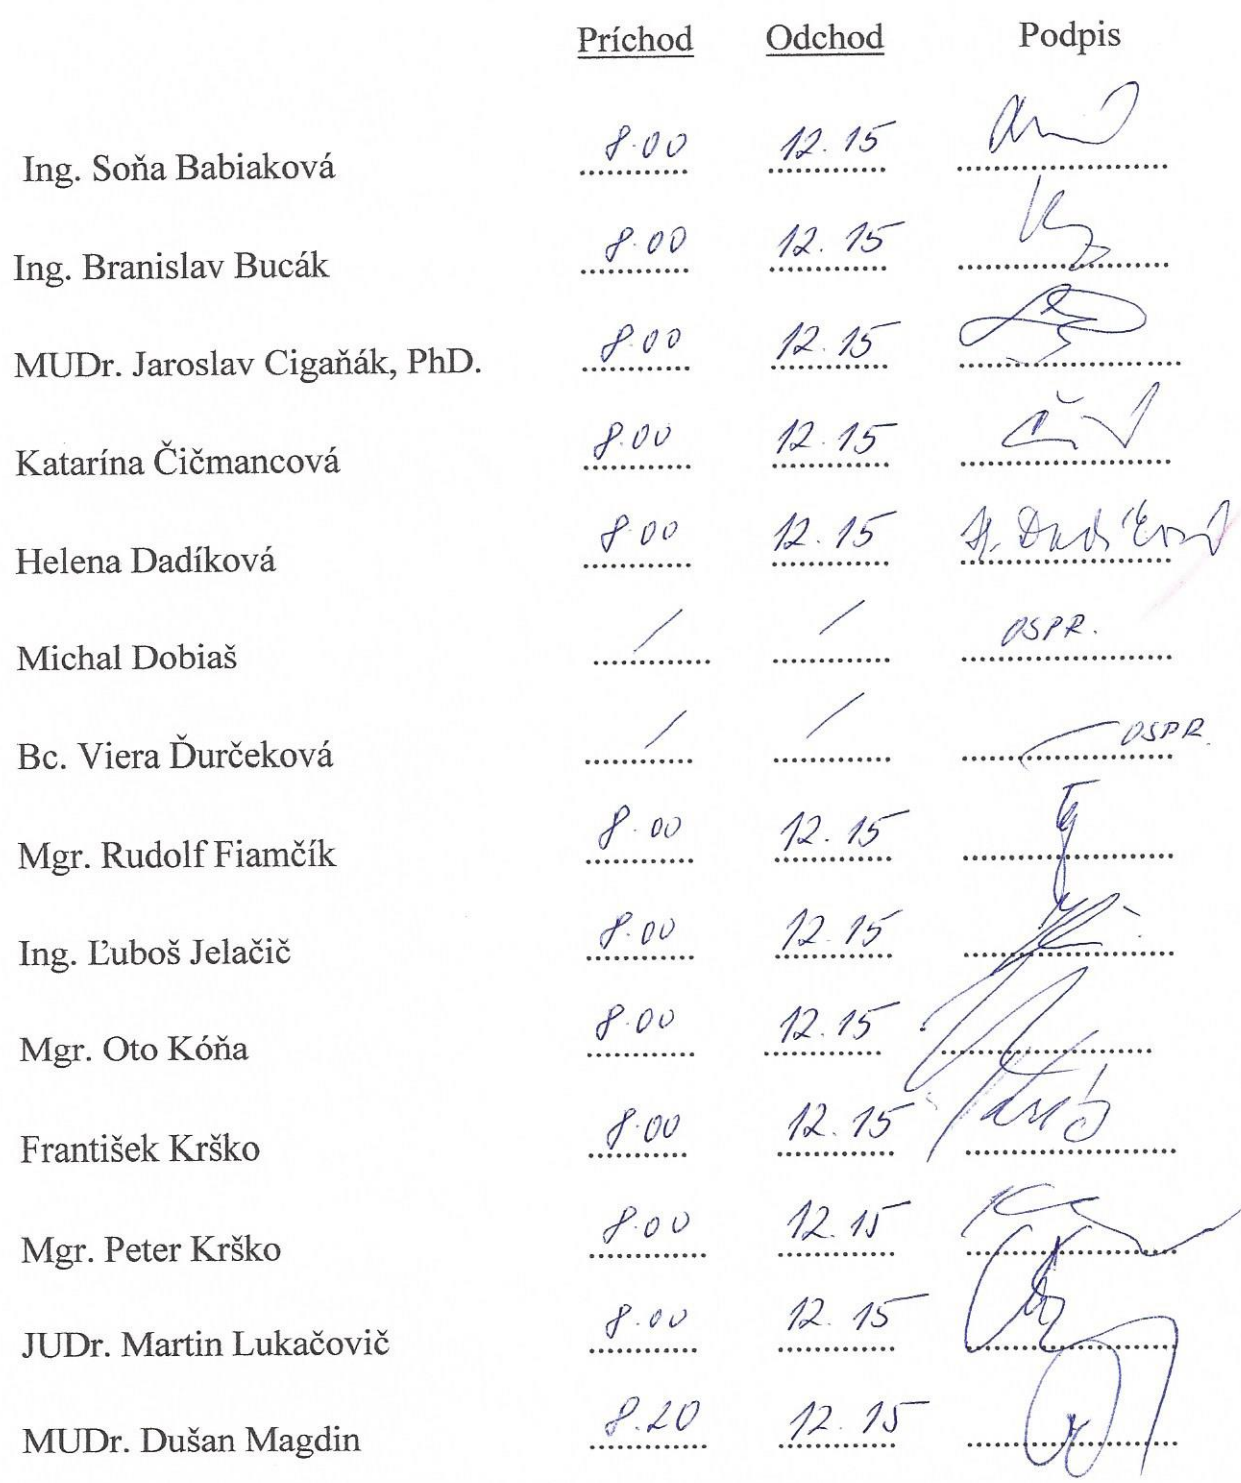 Príchod Odchod Podpis
Ing. Soňa Babiaková 8.00 12.15
Ing. Branislav Bucák 8.00 12.15
MUDr. Jaroslav Cigaňák, PhD. 8.00 12.15
Katarína Čičmancová 8.00 12.15
Helena Dadíková 8.00 12.15 H. Dadíková
Michal Dobiaš / / OSPR.
Bc. Viera Ďurčeková / / OSPR.
Mgr. Rudolf Fiamčík 8.00 12.15
Ing. Ľuboš Jelačič 8.00 12.15
Mgr. Oto Kóňa 8.00 12.15
František Krško 8.00 12.15
Mgr. Peter Krško 8.00 12.15
JUDr. Martin Lukačovič 8.00 12.15
MUDr. Dušan Magdin 8.20 12.15